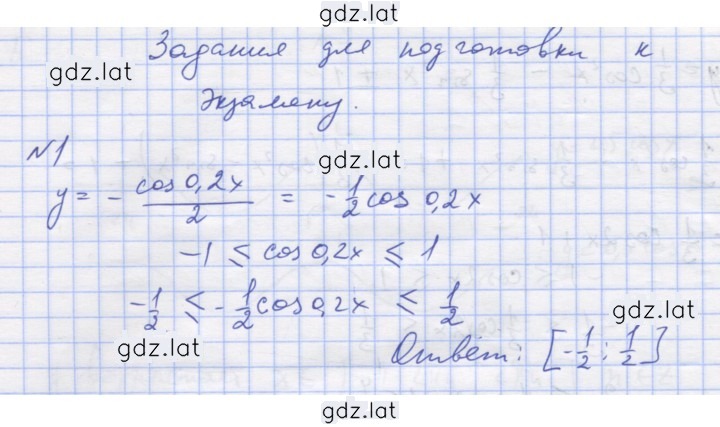 gdz.lat
Задания для подготовки к
gdz.lat
экзамену.
№1
gdz.lat
y = - cos 0,2x / 2 = - 1/2 cos 0,2x
-1 ≤ cos 0,2x ≤ 1
- 1/2 ≤ - 1/2 cos 0,2x ≤ 1/2
gdz.lat
gdz.lat
Ответ: [- 1/2 ; 1/2]
gdz.lat